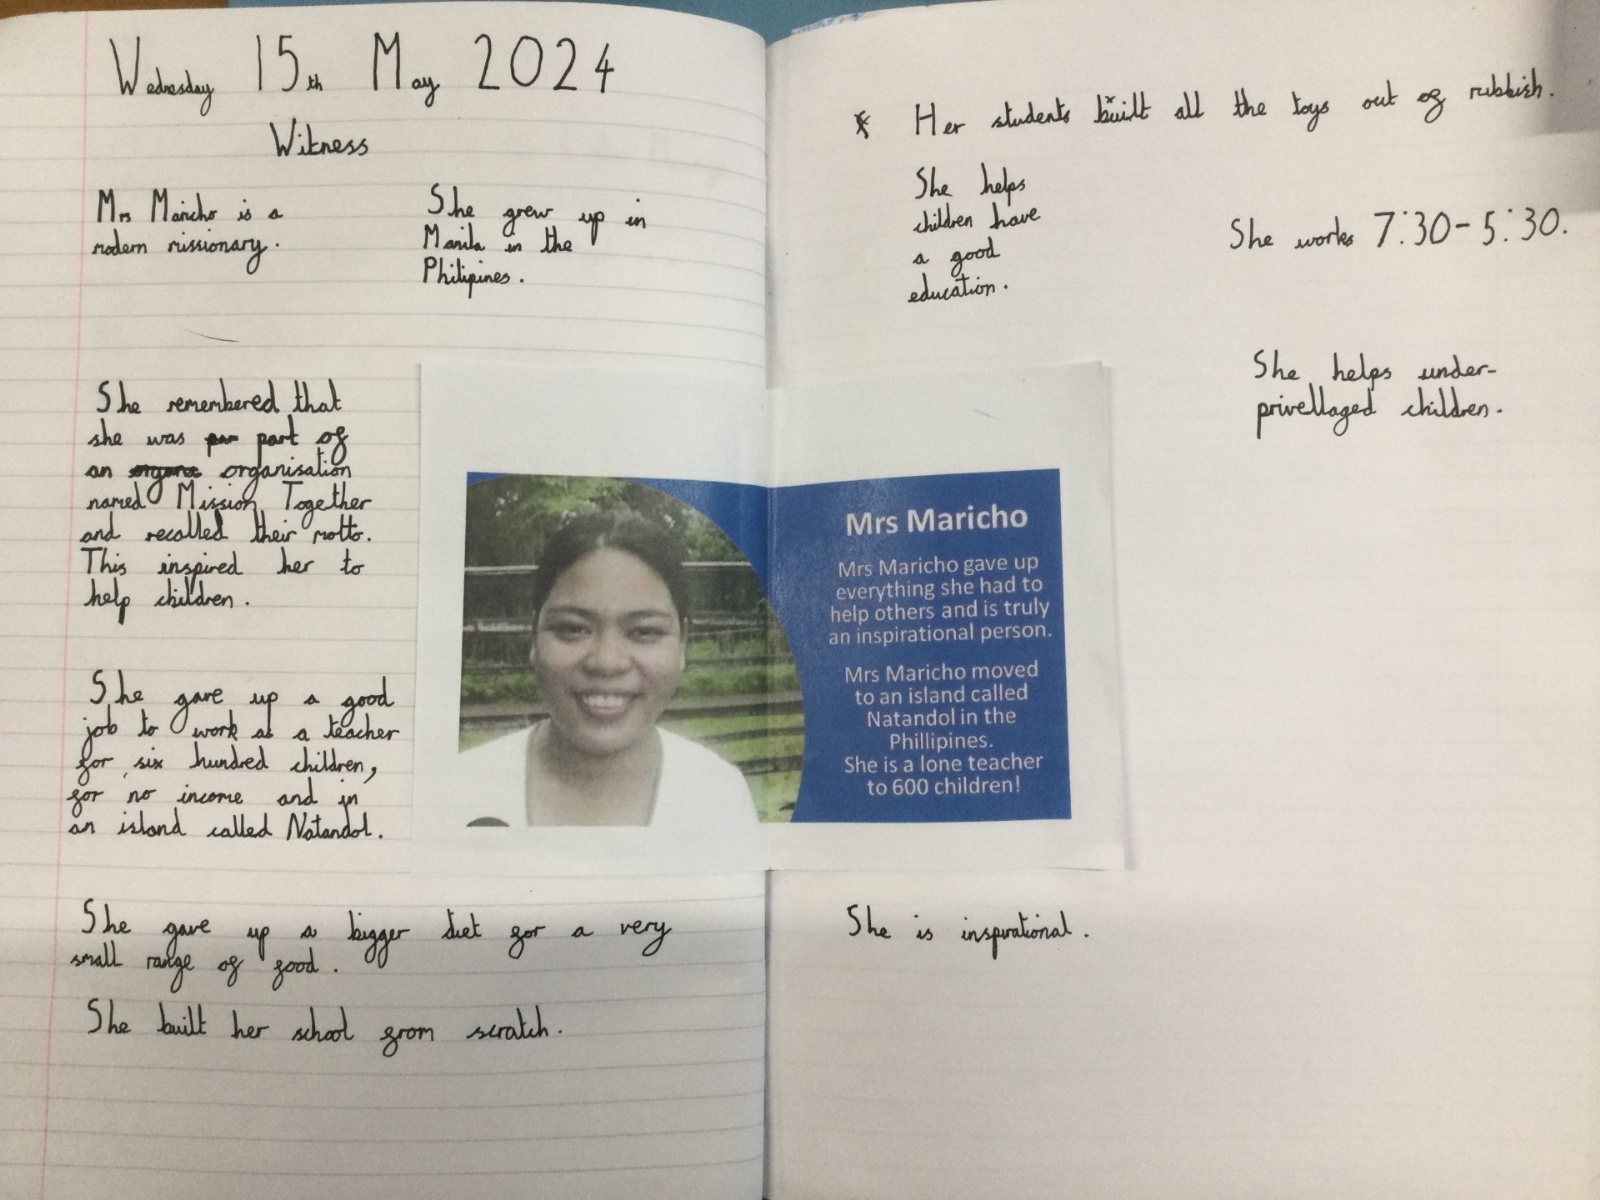 Wednesday 15th May 2024
Witness
Mrs Maricho is a
modern missionary.
She grew up in
Manila in the
Philipines.
She remembered that
she was part of
an organisation
named Mission Together
and recalled their motto.
This inspired her to
help children.
She gave up a good
job to work as a teacher
for six hundred children,
for no income and in
an island called Natandol.
She gave up a bigger diet for a very
small range of food.
She built her school from scratch.
* Her students built all the toys out of rubbish.
She helps
children have
a good
education.
She works 7:30-5:30.
She helps under-
privellaged children.
Mrs Maricho
Mrs Maricho gave up
everything she had to
help others and is truly
an inspirational person.
Mrs Maricho moved
to an island called
Natandol in the
Phillipines.
She is a lone teacher
to 600 children!
She is inspirational.